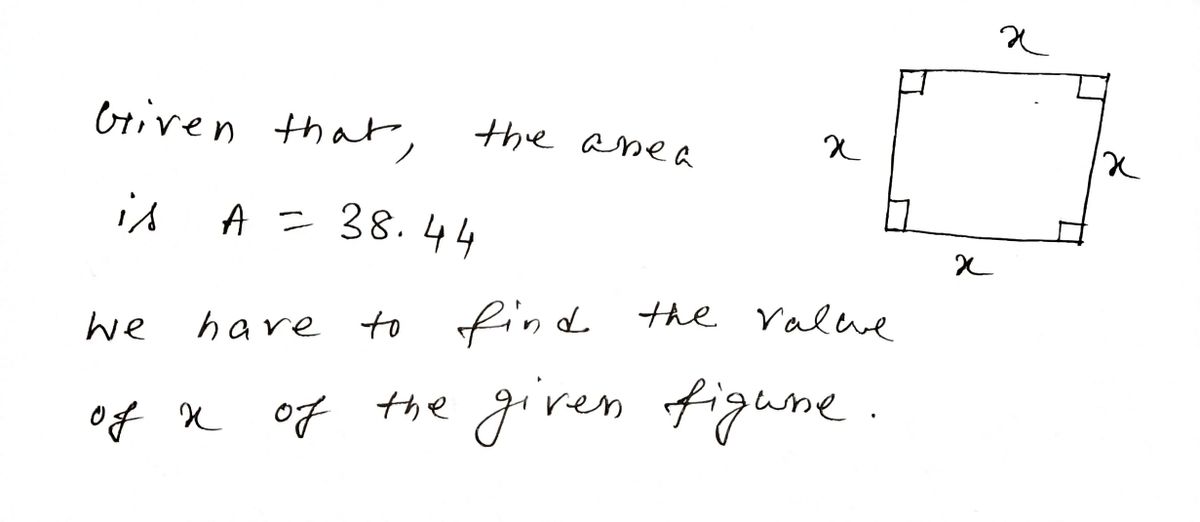 x
Given that, the area
x
x
is A = 38.44
x
we have to find the value
of x of the given figure.